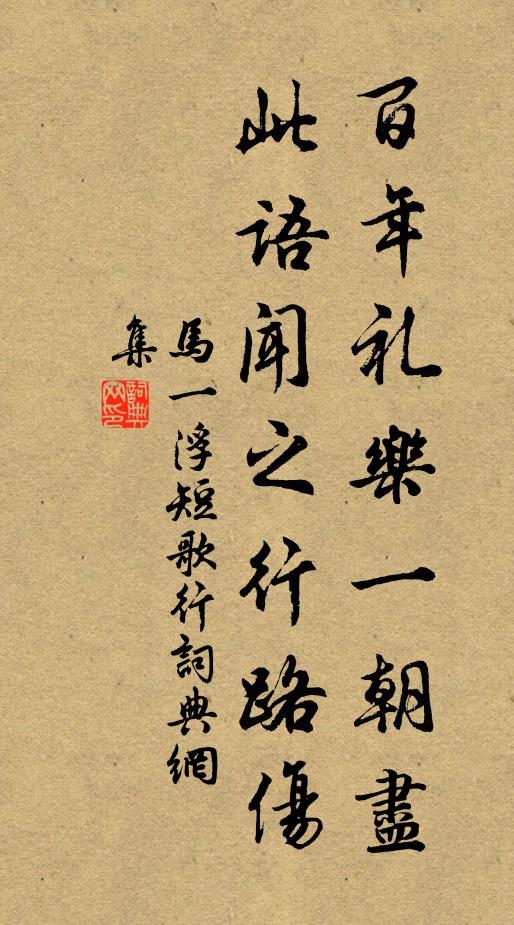 百年礼樂一朝盡
此語聞之行路傷
馬一浮短歌行詞典網
集
詞典网印